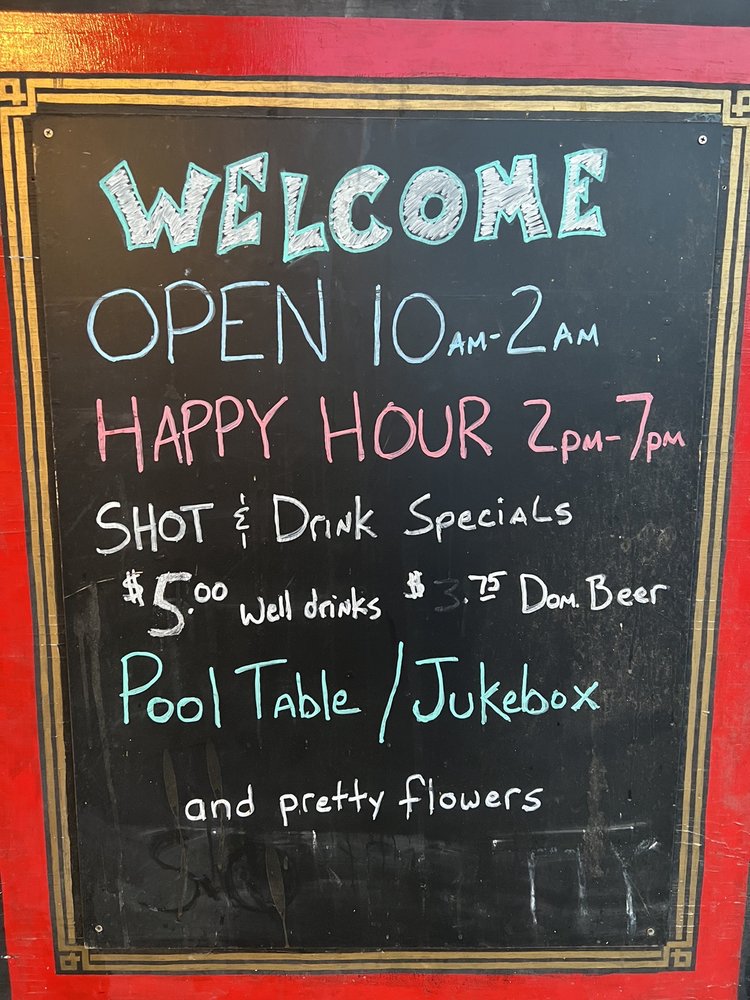 WELCOME
OPEN 10AM-2AM
HAPPY HOUR 2PM-7PM
SHOT & Drink Specials
$5.00 Well drinks $3.75 Dom. Beer
Pool Table / Jukebox
and pretty flowers